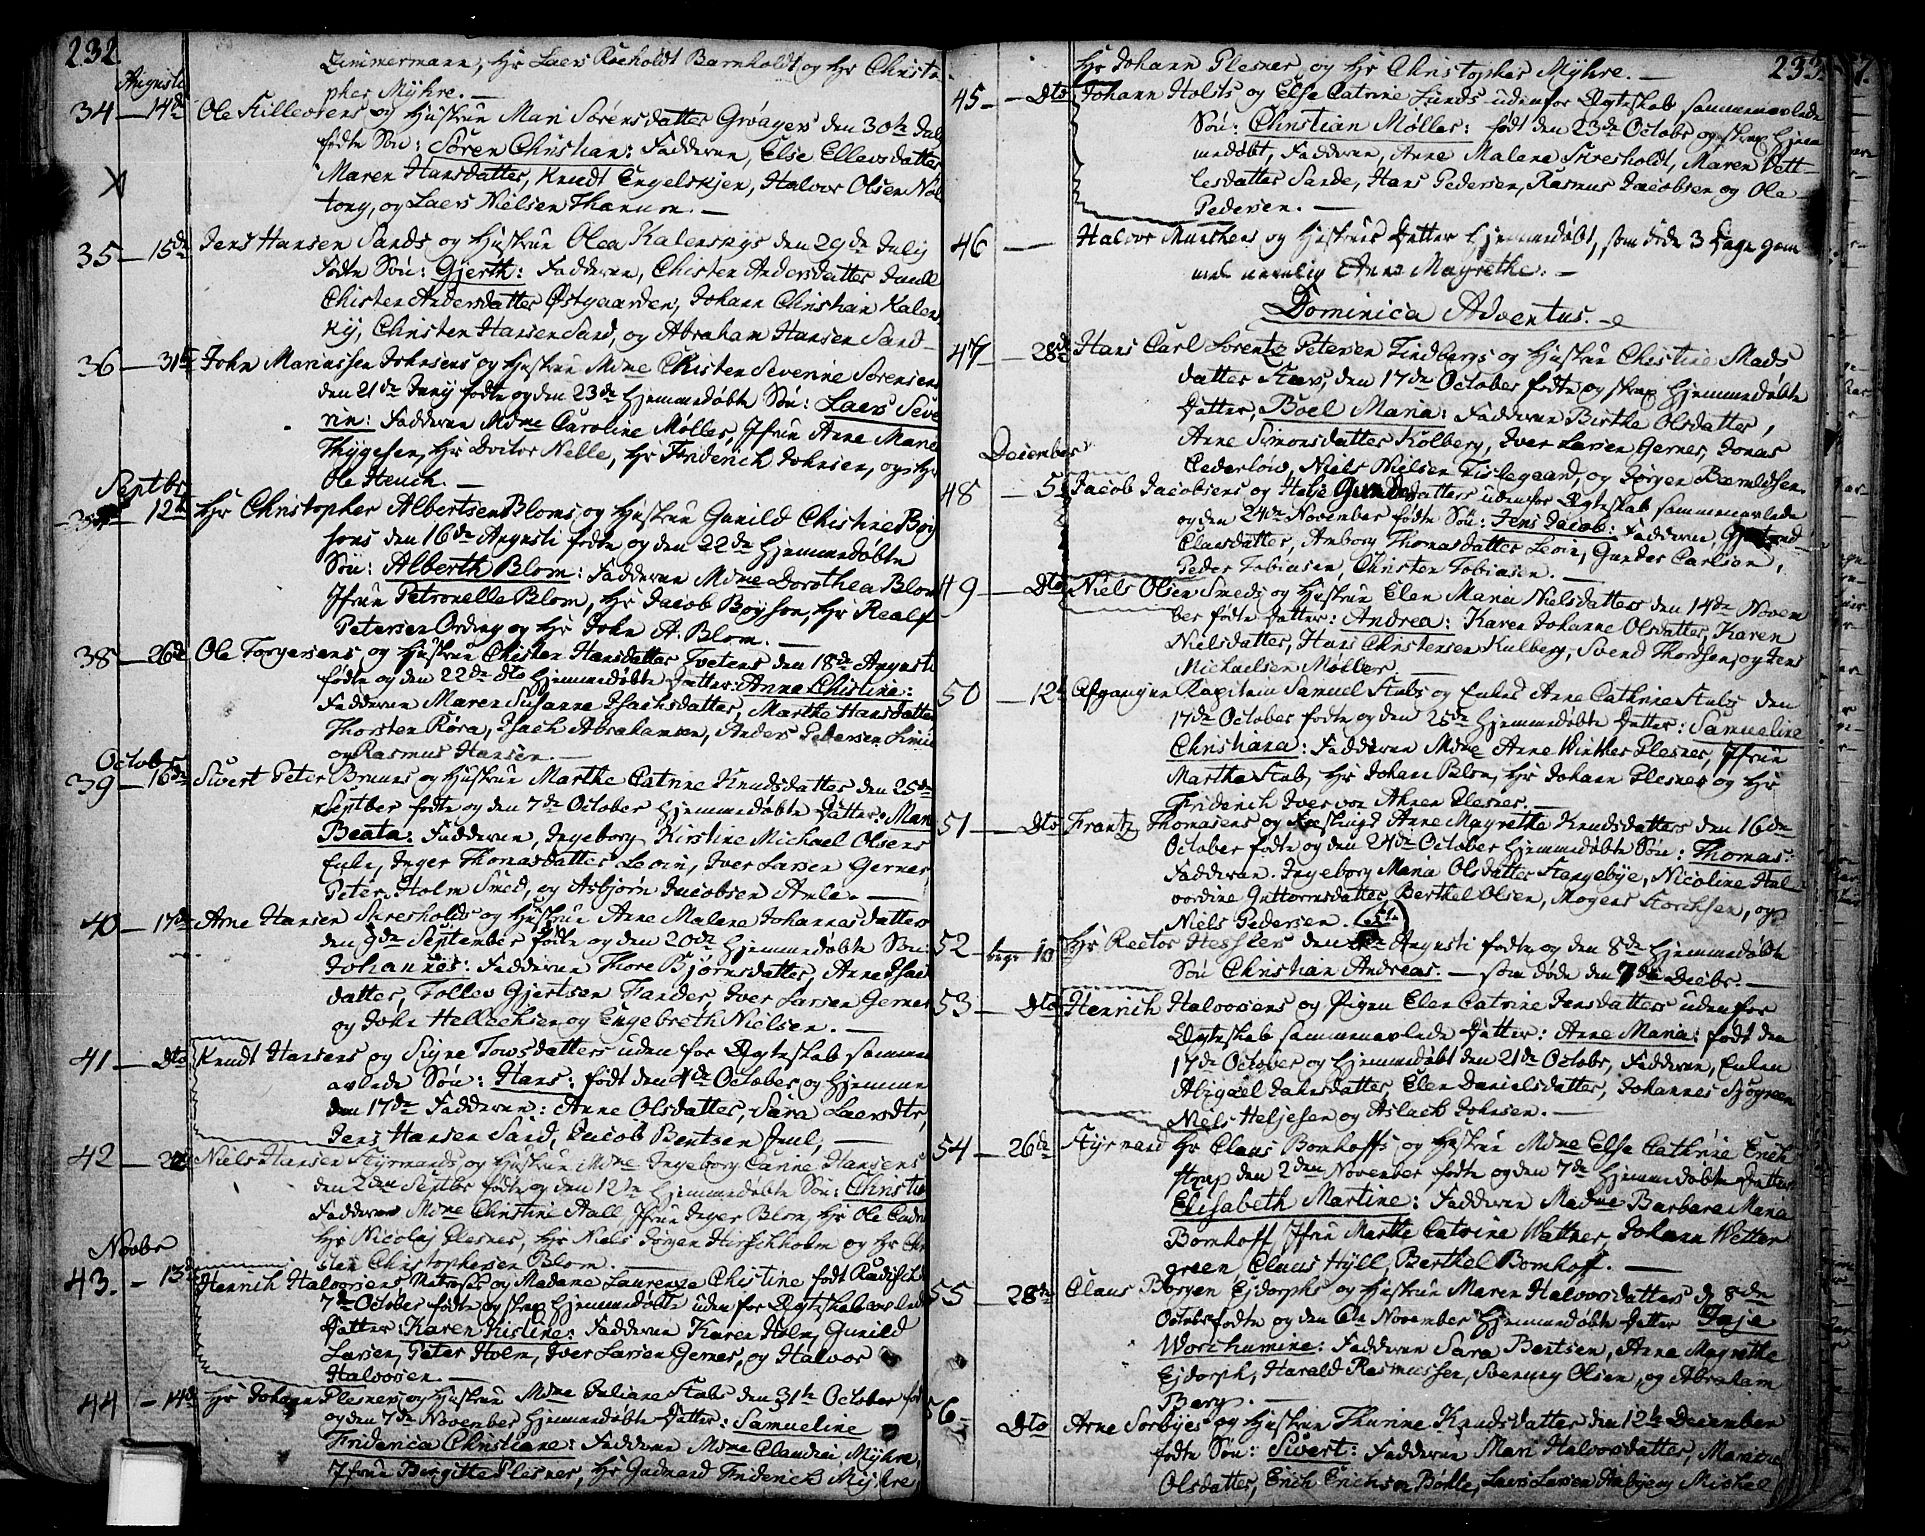 232.
Zimmermann, Hr Laers Roeholdt Barnholdt og Hr Christo
pher Mÿhre. —
Augusti
34 — 14de Ole Killevsens og Hustrue Mari Sørensdatter Grvagers den 30te July
fødte Søn: Søren Christian: Fadderne, Else Ellevsdatter
Maren Hansdatter, Knudt Engelskjen, Halvor Olsen
tong, og Laers Nielsen Thanum. —
35 — 15de Jens Hansen Sands og Hustrue Olea Kalenskys den 29de July
fødte Søn: Gjerth: Fadderne, Chisten Andersdatter
Chisten Andersdatter Østgaarden, Johann Christian Kalens
kij, Christen Hansen Sand, og Abraham Hansen Sand —
36 — 31te John Mariussen Johnsens og Hustrue Mdme Chisten Severine Sørensens
den 21de Junij fødte og den 23de Hjemmedøbte Søn: Laers Seve
rin: Fadderne Mdme Caroline Møller, Jfrue Anne Marie
Thÿgesen, Hr Doctor Nelle, Hr Friderich Johnsen, og Hr
Ole Hench. —
Septbr
12te Hr Christopher Albertsen Bloms og Hustrue Gunild Christine Boy
sons den 16de Augusti fødte og den 22de Hjemmedøbte
Søn: Alberth Blom: Fadderne Mdme Dorothea Blom
Jfrue Petronelle Blom, Hr Jacob Boyson, Hr Realf
Petersen Ording og Hr John A. Blom. —
38 — 26de Ole Torgersens og Hustrue Chisten Hansdatter Tvetens den 18de Augusti
fødte og den 22de dto Hjemmedøbte Datter: Anna Chistine:
Fadderne Maren Susanne Isachsdatter, Marthe Hansdatter
Thorsten Røra, Isach Abrahamsen, Anders Pedersen
og Rasmus Hansen. —
Octobr
39 — 16de Sivert Peter Bruuns og Hustrue Marthe Catrine Knudsdatter den 25de
Septber fødte og den 7de October Hjemmedøbte Datter: Mari
Beata: Fadderne, Ingeborg Kirstine Michael Olsens
Enke, Inger Thomasdatter Levin, Iver Larsen Gernes
Peter Holm Smed, og Asbjørn Jacobsen Amle. —
40 — 17de Arne Hansen Skresholds og Hustrue Anne Malene Johannesdatters
den 9de September fødte og den 20de Hjemmedøbte Søn:
Johannes: Fadderne Thore Bjørnsdatter, Anne Isac
datter, Tollev Gjertsen Fander, Iver Larsen Gernes
og John Hellechsen og Engebreth Nielsen. —
41 — Dto Knudt Hansens og Signe Towsdatters uden for Ægteskab sammen
avlede Søn: Hans: født den 4de October og Hjemme
den 17de Fadderne: Anne Olsdatter, Sara Laersdtr,
Jens Hansen Sand, Jacob Bentzen Juul, —
42 — Niels Hansen Styrmands og Hustrue Mdme Ingeborg Canne Hansens
den 2den Septbr fødte og den 12te Hjemmedøbte Søn: Christen
Fadderne Mdme Christine Aall Jfrue Inger Blom, Hr Ole
Hr Nicolaj Plesner, Hr Niels Jørgen Hirschholm og Hr Chr
sten Christophersen Blom. —
Novbr
43. — 13de Henrich Halvorsens Matros og Madame Laurenze Chistine født
7de October fødte og skrap Hjemmedøbte uden for Ægteskab avlede
Datter: Karen Kistine: Fadderne Karen Holm, Gunild
Larsen, Peter Holm, Iver Larsen Gernes, og Halvor
Halvorsen. —
44 — 14de Hr Johann Plesners og Hustrue Mdme Juliane Stabs den 31te October fød
og den 7de November Hjemmedøbte Datter: Samueline
Friderica Christiane: Fadderne Mdme Claudia Mÿhre,
Jfrue Birgitte Plesner, Hr Gudmand Friderich Mÿhre,
233.
Hr Johann Plesner og Hr Christopher Mÿhre. —
45 — Dto Johann Holsts og Else Catrine Lunds uden for Ægteskab sammenavlede
Søn: Christian Møller: født den 23de Octobr og skrap Hjem
medøbt, Fadderne, Anne Malene Skresholdt, Maren Dett-
lesdatter Sande, Hans Pedersen, Rasmus Jacobsen og Ole
Pedersen. —
46 — Halvor Murkers og Hustrues Datter Hjemmedøbt, som døde 3 Dage gam
mel nemlig Anne Magrethe. —
Dominica Adventus.
47 — 28de Hans Carl Lorentz Petersen Lindbergs og Hustrue Christine Mads
datter Stavs, den 17de October fødte og skrap Hjemmedøbte
Datter, Boel Maria: Fadderne Birthe Olsdatter,
Anne Simonsdatter Kolberg, Iver Larsen Gernes, Jonas
Cederlöw, Niels Nielsen Tislegaard, og Jørgen Berntsen.
December
48 — 5 Jacob Jacobsens og Helje Gundersdatters uden for Ægteskab sammenavlede
og den 24de November fødte Søn: Jens Jacob: Fadderne
Claesdatter, Amborg Thomasdatter Levin, Gunder Carlsen,
Peder Tobiasen, Christen Tobiasen. —
49 — Dto Niels Olsen Smeds og Hustrue Elen Maria Nielsdatters den 14de Novem
ber fødte Datter: Andrea: Karen Johanne Olsdatter, Karen
Nielsdatter, Hans Christensen Kulberg, Svend Thordsen, og Jens
Michaelsen Møller —
50 — 12te Afgangne Kapitein Samuel Stabs og Enked Anne Cathrine Stabs den
17de October fødte og den 25de Hjemmedøbte Datter: Samueline
Christiana: Fadderne Mdme Anne Winther Plesner, Jfrue
Martha Stab, Hr Johan Blom, Hr Johann Plesner og Hr
Friderich Iver von Ahnen Plesner. —
51 — Dto Frantz Thomasens og Anne Magrethe Knudsdatters den 16de
October fødte og den 24de October Hjemmedøbte Søn: Thomas:
Fadderne Ingeborg Maria Olsdatter Stangebÿe, Nicoline Hal-
vordine Guttormsdatter, Berthel Olsen, Mogens Storchsen, og
Niels Pedersen.
52 — 10 Hr Rector Hesslers den Augusti fødte og den 8de Hjemmedøbte
Søn Christian Andreas. — som døde den 7de Decbr. —
53 — Dto Henrich Halvorsens og Pigen Elen Catrine Jensdatters uden for
Ægteskab sammenavlede Datter: Anne Maria: født den
17de October og Hjemmedøbt den 21de Octobr, Fadderne, Enken
Abigaël Jahnsdatter, Elen Danielsdatter, Johannes Sjøgreen
Niels Heljesen og Aslach Johnsen. —
54 — 26de Styrmand Hr Claus Bomhoffs og Hustrue Mdme Else Cathrine Erich
strup den 2den November fødte og den 7de Hjemmedøbte Datter
Elisabeth Martine: Fadderne Madme Barbara Maria
Bomhoff Jfrue Marthe Catrine Wattner, Johann Wetter
green Claus Hÿll, Berthel Bomhof. —
55 — 28de Claus Børgen Ejdorphs og Hustrue Maren Halvorsdatters d. 8de
Octobr fødte og den November Hjemmedøbte Datter Taje
Worchumine: Fadderne Sara Bentsen, Anne Magrethe
Ejdorph, Harald Rasmussen, Svenung Olsen, og Abraham
Berg. —
56 — Dto Arne Sorbÿes og Hustrue Thurine Knudsdatters den 12te December
fødte Søn: Sivert: Fadderne Mari Halvorsdatter, Marthe
Olsdatter, Erich Erichsen Bøhle, Laers Larsen Michel